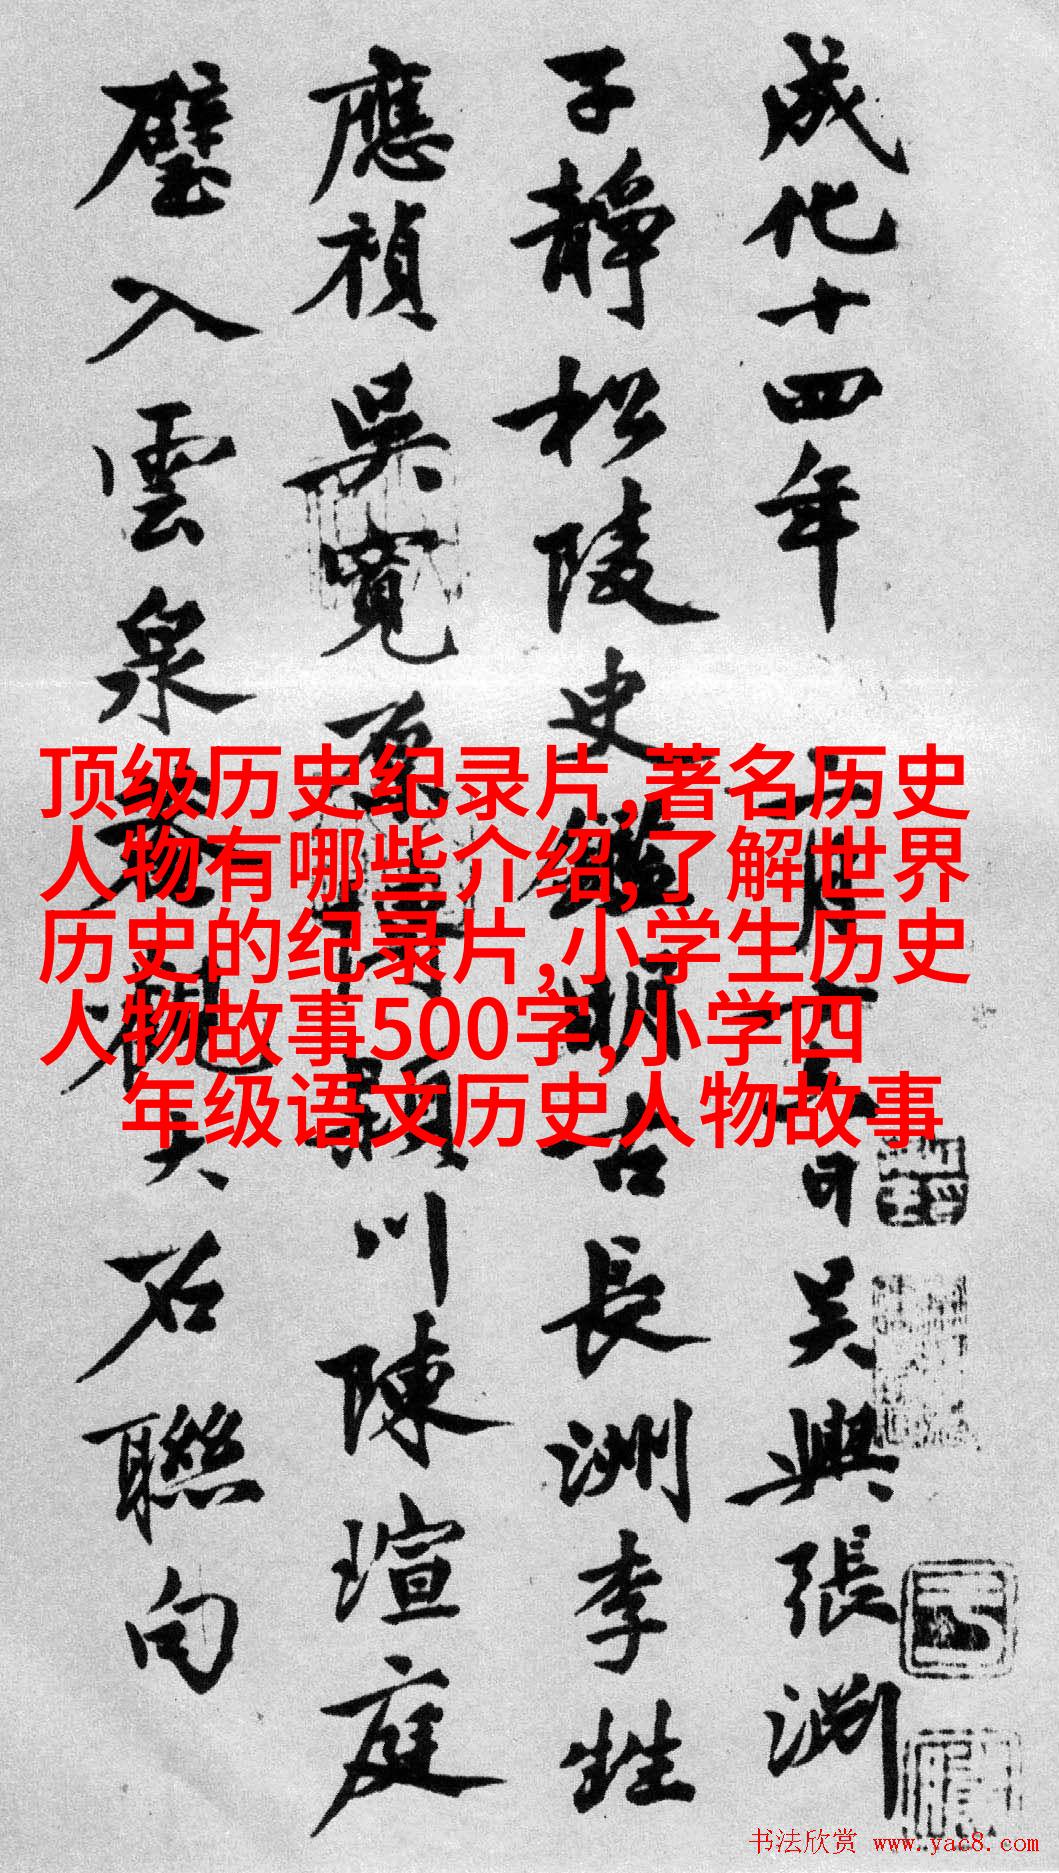 成化十四年二月十六日吴興張淵
子静松陵史鑑明古長洲李甡
應禎吳寬原博潁川陳瑄庭
璧入雲泉菴觀大石聯句
顶级历史纪录片,著名历史
人物有哪些介绍,了解世界
历史的纪录片,小学生历史
人物故事500字,小学四
年级语文历史人物故事
书法欣赏 www.yac8.com